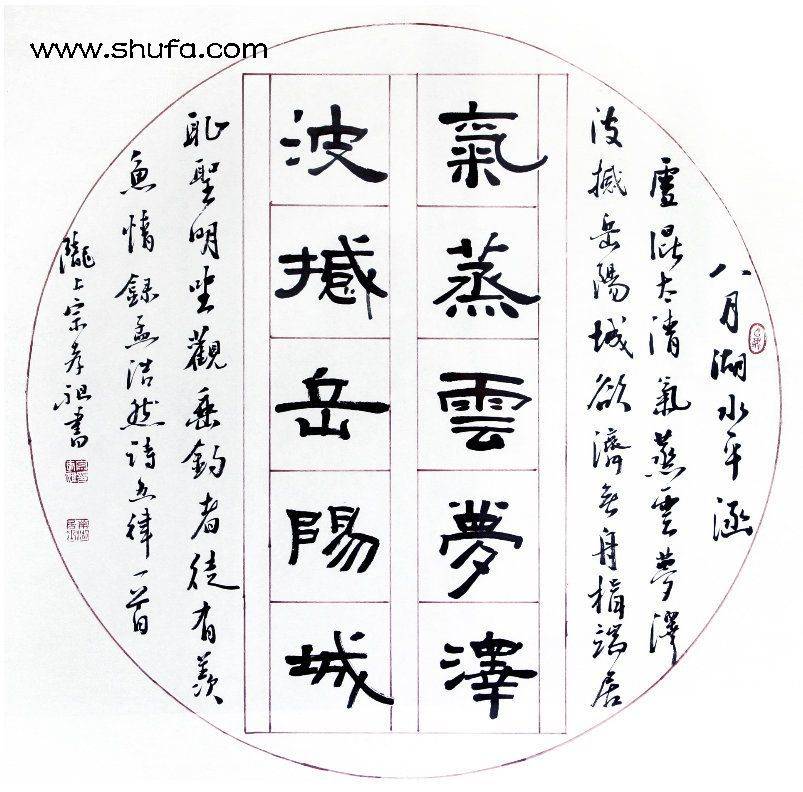 www.shufa.com
八月湖水平涵
虛混太清氣蒸雲夢澤
波撼岳陽城欲濟無舟楫端居
氣蒸雲夢澤
波撼岳陽城
耻聖明坐觀垂釣者徒有羨
魚情錄孟浩然詩五律一首
隴上宗孝祖書